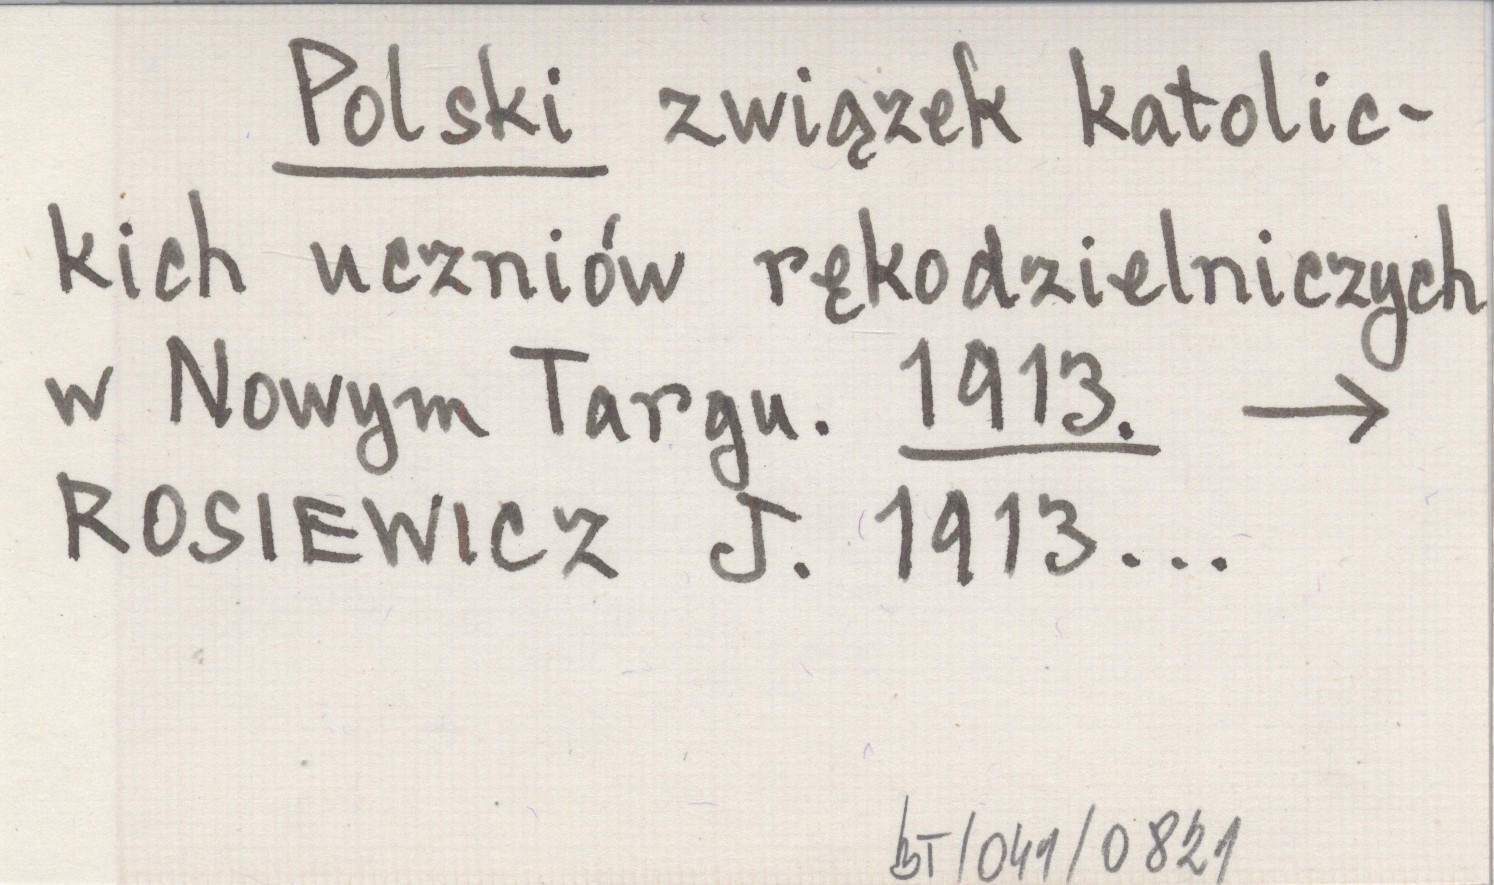 Polski związek katolic-
kich uczniów rękodzielniczych
w Nowym Targu. 1913. →
ROSIEWICZ J. 1913...
BT/041/0821